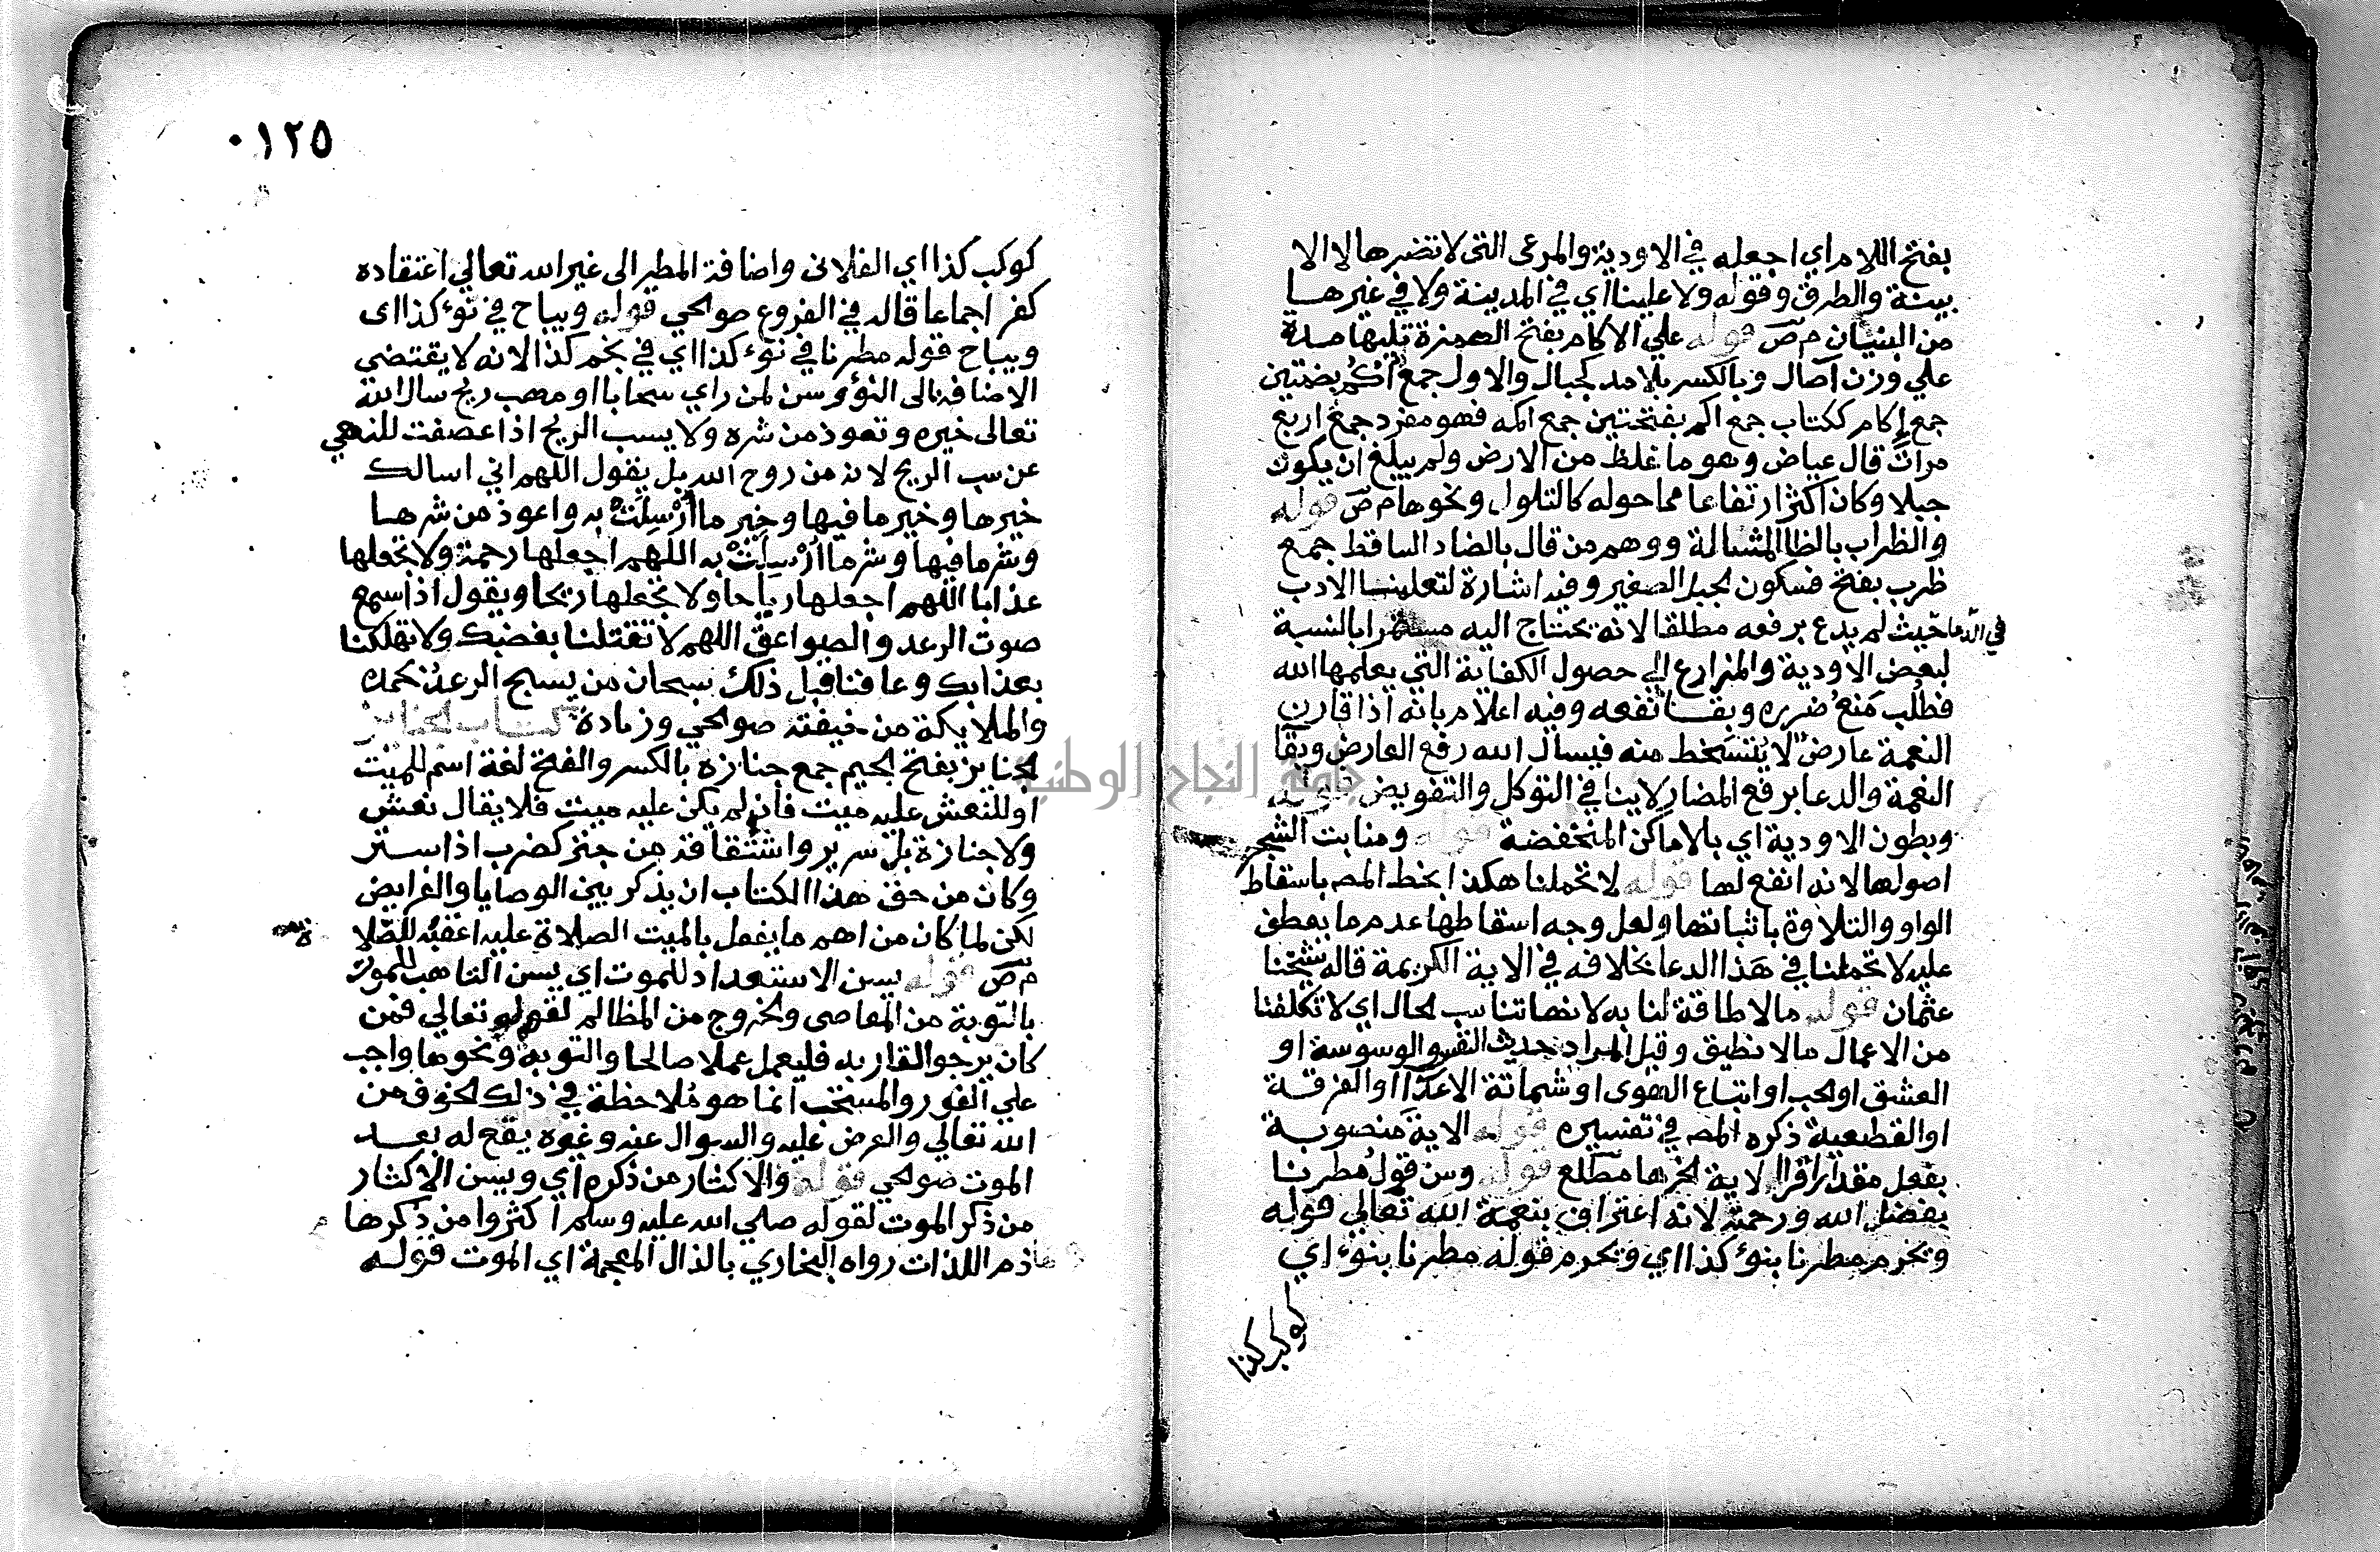 بفتح اللام اي اجعله في الاودية والمرعى التي لا تضرها لا الا
بينة والطرق وقوله ولا علينا اي في المدينة ولا في غيرهــا
من البنيان م ص قوله علي الاكام بفتح الهمزة تليها مدة
علي وزن آصال وبالكسر بلا مد كجبال والاول جمع أُكُم بضمتين
جمع إكام ككتاب جمع اكم بفتحتين جمع اكمه فهو مفرد جمع اربع
مرات قال عياض وهو ما غلظ من الارض ولم يبلغ ان يكون
جبلا وكان اكثر ارتفاعا مما حوله كالتلول ونحوها م ص قوله
والظراب بالظا المشالة ووهم من قال بالضاد الساقط جمع
ظرب بفتح فسكون لجبل الصغير وفيه اشارة لتعليمنا الادب
في الدعا حيث لم يدع برفعه مطلقا لانه يحتاج اليه مستمرا بالنسبة
لبعض الاودية والمزارع الي حصول الكفاية التي يعلمها الله
فطلب مَنع ضرره وبقــا نفعه وفيه اعلام بانه اذا قارن
النعمة عارض لا يتسخط منه فيسال الله رفع العارض وبقا
النعمة والدعا برفع المضار لا ينافي التوكل والتفويض قوله
وبطون الاودية اي بالاماكن المنخفضة قوله ومنابت الشجر
اصولها لانه انفع لها قوله لا تحملنا هكذا بخط المص باسقاط
الواو والتلاوة باثباتها ولعل وجه اسقاطها عدم ما يعطف
عليه لا تحملنا في هذا الدعا بخلافه في الاية الكريمة قاله شيخنا
عثمان قوله ما لا طاقة لنا به لانها تناسب لحال اي لا تكلفنا
من الاعمال ما لا نطيق وقيل المراد حديث النفس والوسوسة او
العشق او لحب او اتباع الهوى او شماتة الاعدا او الفرقة
او القطيعة ذكره المص في تفسيره قوله الاية منصوبـة
بفعل مقدر اي اقرا الاية لخرها مطلع قوله وسن قول مطرنا
بفضل الله ورحمته لانه اعتراف بنعمة الله تعالي قوله
ويحرم مطرنا بنوء كذا اي ويحرم قوله مطرنا بنوء اي
كوكب كذا
٠١٢٥
كوكب كذا اي الفلانى واضافة المطر الى غير الله تعالي اعتقاده
كفر اجماعا قاله في الفروع صوالحي قوله ويباح في نوء كذا اى
ويباح قوله مطرنا في نوء كذا اي في نجم كذا لانه لا يقتضي
الاضافة الى النوء وسن لمن راي سحابا او مهب ريح سال الله
تعالى خيره وتعوذ من شره ولا يسب الريح اذا عصفت للنهي
عن سب الريح لانه من روح الله بل يقول اللهم اني اسالك
خيرها وخير ما فيها وخير ما أُرْسِلَتْ به واعوذ من شرهـا
وشر ما فيها وشر ما أُرْسِلَتْ به اللهم اجعلها رحمة ولا تجعلها
عذابا اللهم اجعلها رياحا ولا تجعلها ريحا ويقول اذا سمع
صوت الرعد والصواعق اللهم لا تقتلنا بغضبك ولا تهلكنا
بعذابك وعافنا قبل ذلك سبحان من يسبح الرعد بحمده
والملايكة من خيفته صوالحي وزيادة كتــاب لجنايز
لجنايز بفتح لجيم جمع جنازه بالكسر والفتح لغة اسم للميت
او للنعش عليه ميت فان لم يكن عليه ميت فلا يقال نعش
ولا جنازة بل سرير واشتقاقه من جنز كضرب اذا ستر
وكان من حق هذا الكتاب ان يذكر بين الوصايا والفرايض
لكن لما كان من اهم ما يفعل بالميت الصلاة عليه اعقبه للصلاة
م ص قوله يسن الاستعداد للموت اي يسن التاهب للموت
بالتوبة من المعاصي ولخروج من المظالم لقوله تعالي فمن
كان يرجو لقا ربه فليعمل عملا صالحا والتوبة ونحوها واجب
علي الفور والمستحب انما هو ملاحظة في ذلك لخوف من
الله تعالي والعرض عليه والسوال عنه وغيره يقع له بعــد
الموت صوالحي قوله والاكثار من ذكره اي ويسن الاكثار
من ذكر الموت لقوله صلي الله عليه وسلم اكثروا من ذكر ها
ها ذم اللذات رواه البخاري بالذال المعجمة اي الموت قولـه
جامعة النجاح الوطنية